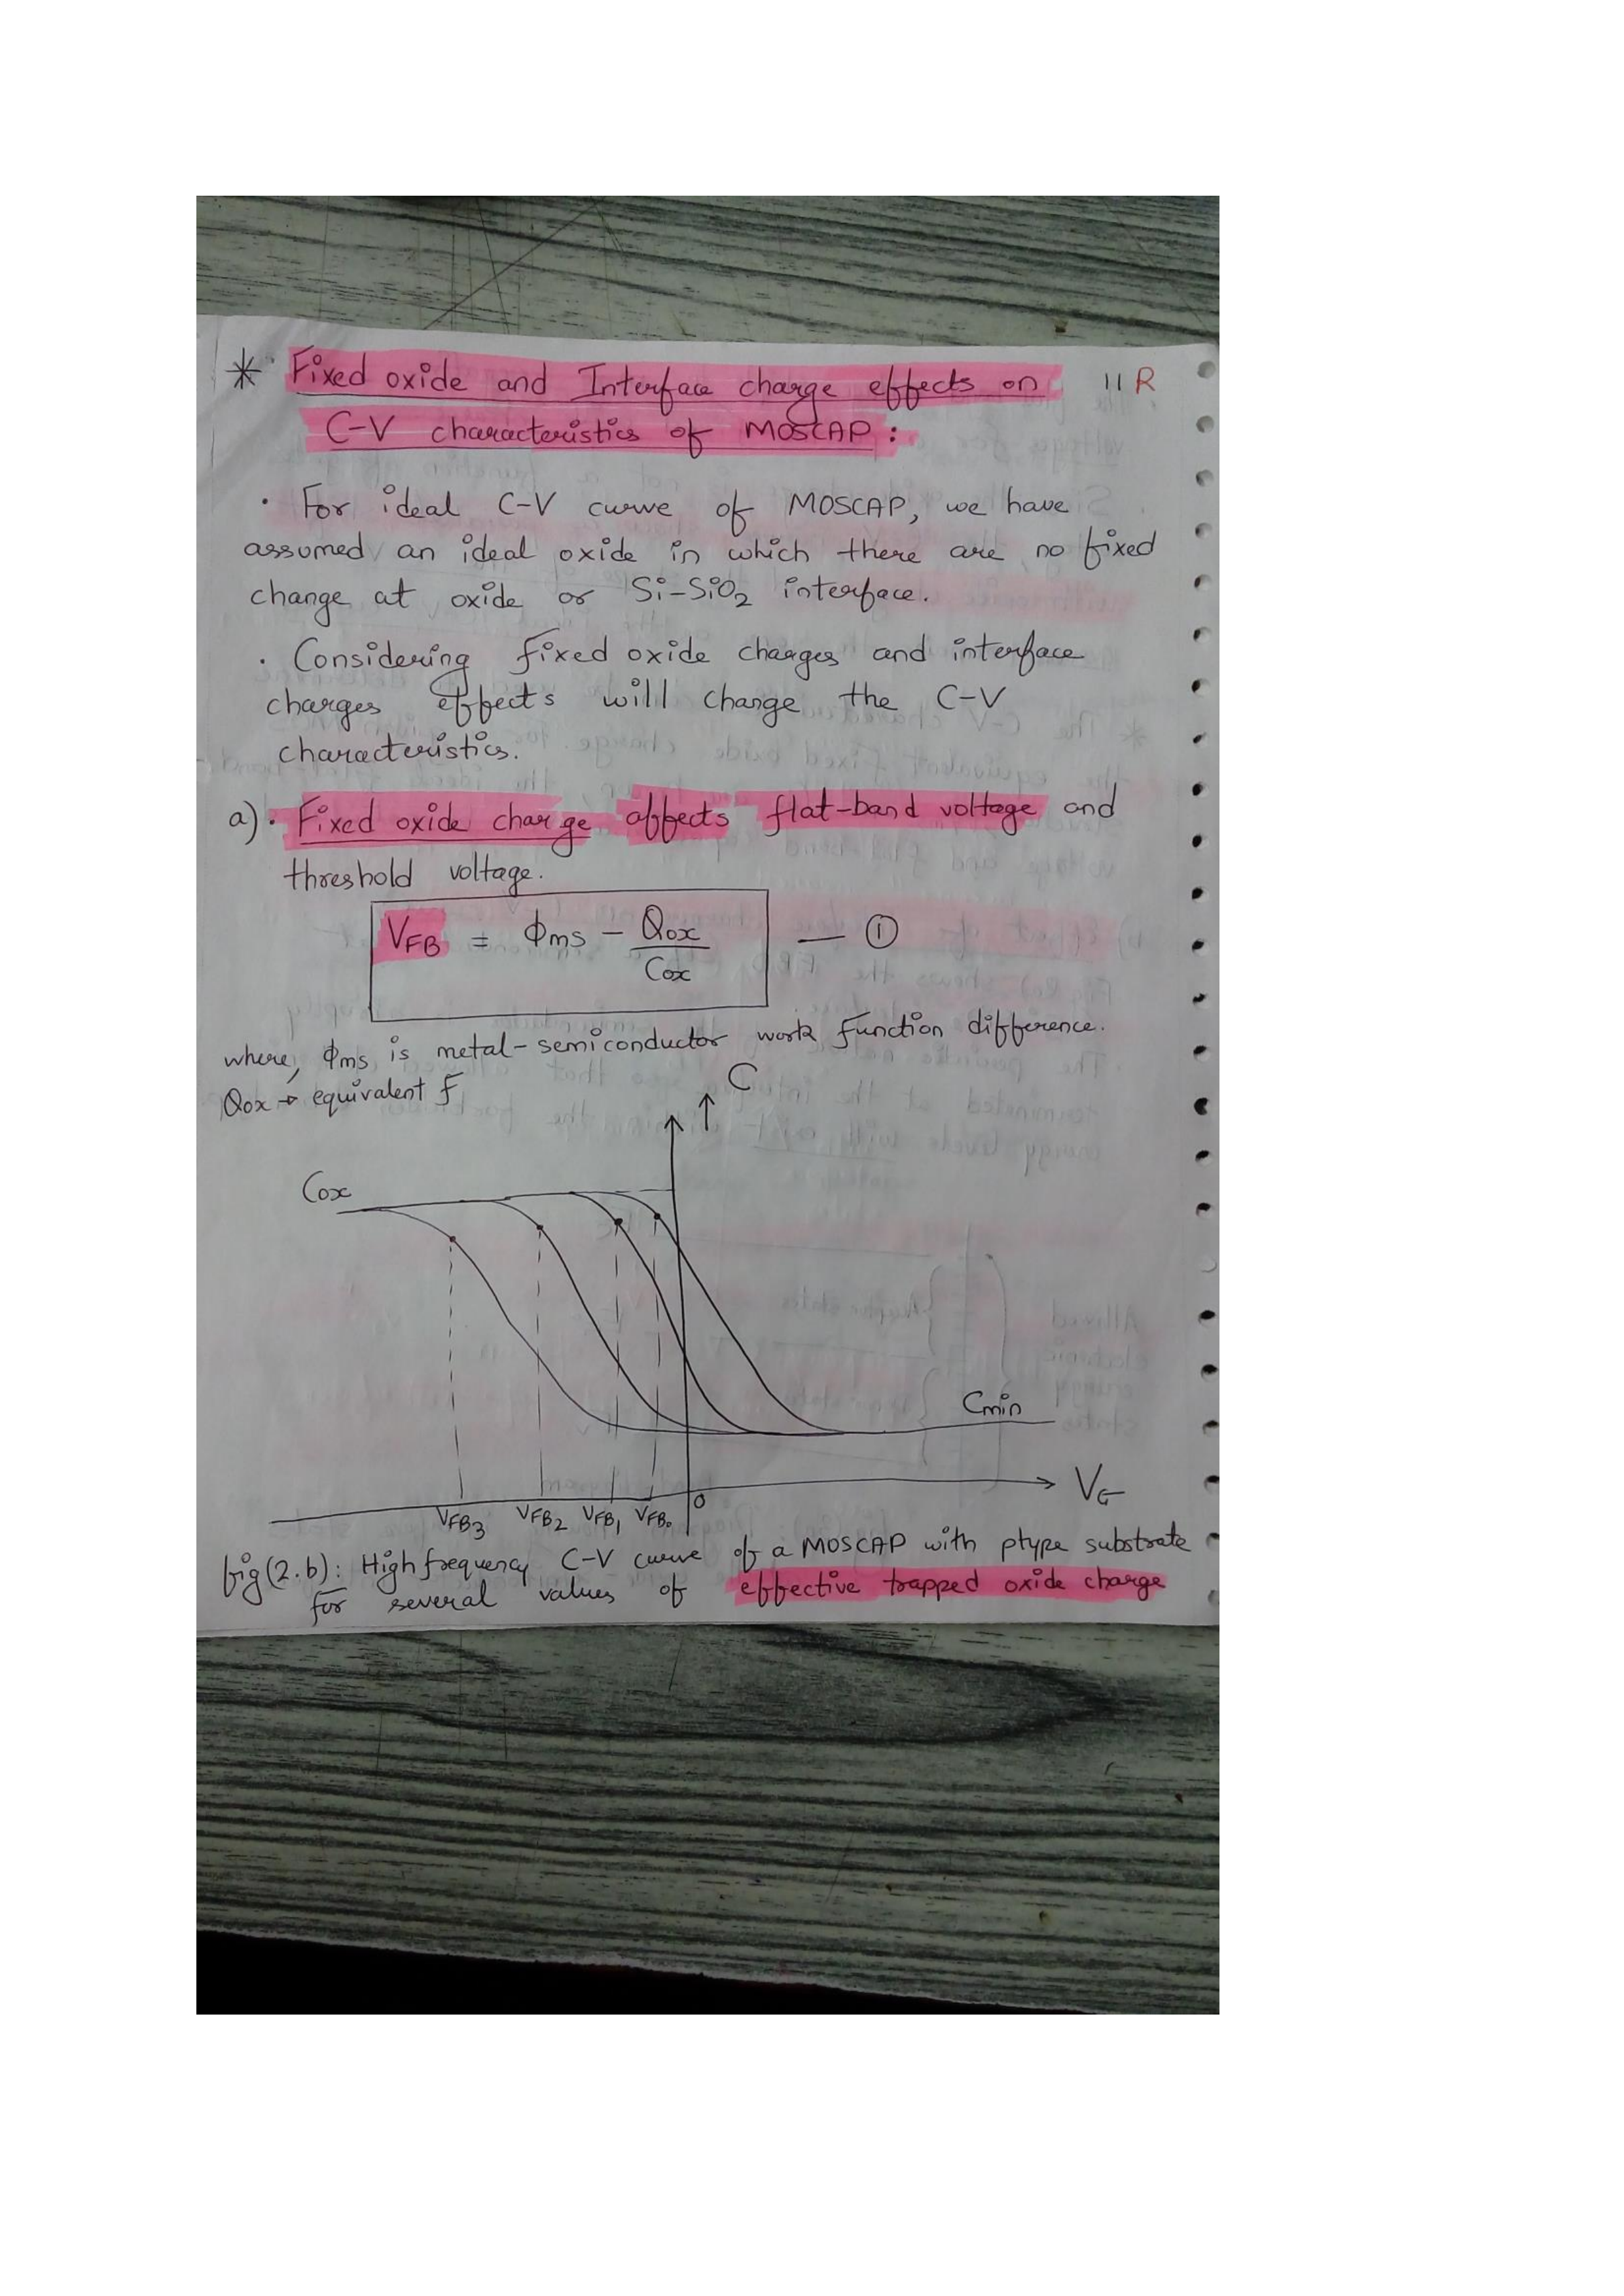 * Fixed oxide and Interface charge effects on 11 R
C-V characteristics of MOSCAP :
· For ideal C-V curve of MOSCAP, we have
assumed an ideal oxide in which there are no fixed
change at oxide or Si-SiO2 interface.
· Considering fixed oxide charges and interface
charges effects will change the C-V
characteristics.
a) · Fixed oxide charge affects flat-band voltage and
threshold voltage.
VFB = Φms - Qox/Cox — ①
where, Φms is metal-semiconductor work function difference.
Qox → equivalent f
C
Cox
Cmin
VG
0
VFB3 VFB2 VFB1 VFB0
fig(2.b): High frequency C-V curve of a MOSCAP with ptype substrate
for several values of effective trapped oxide charge